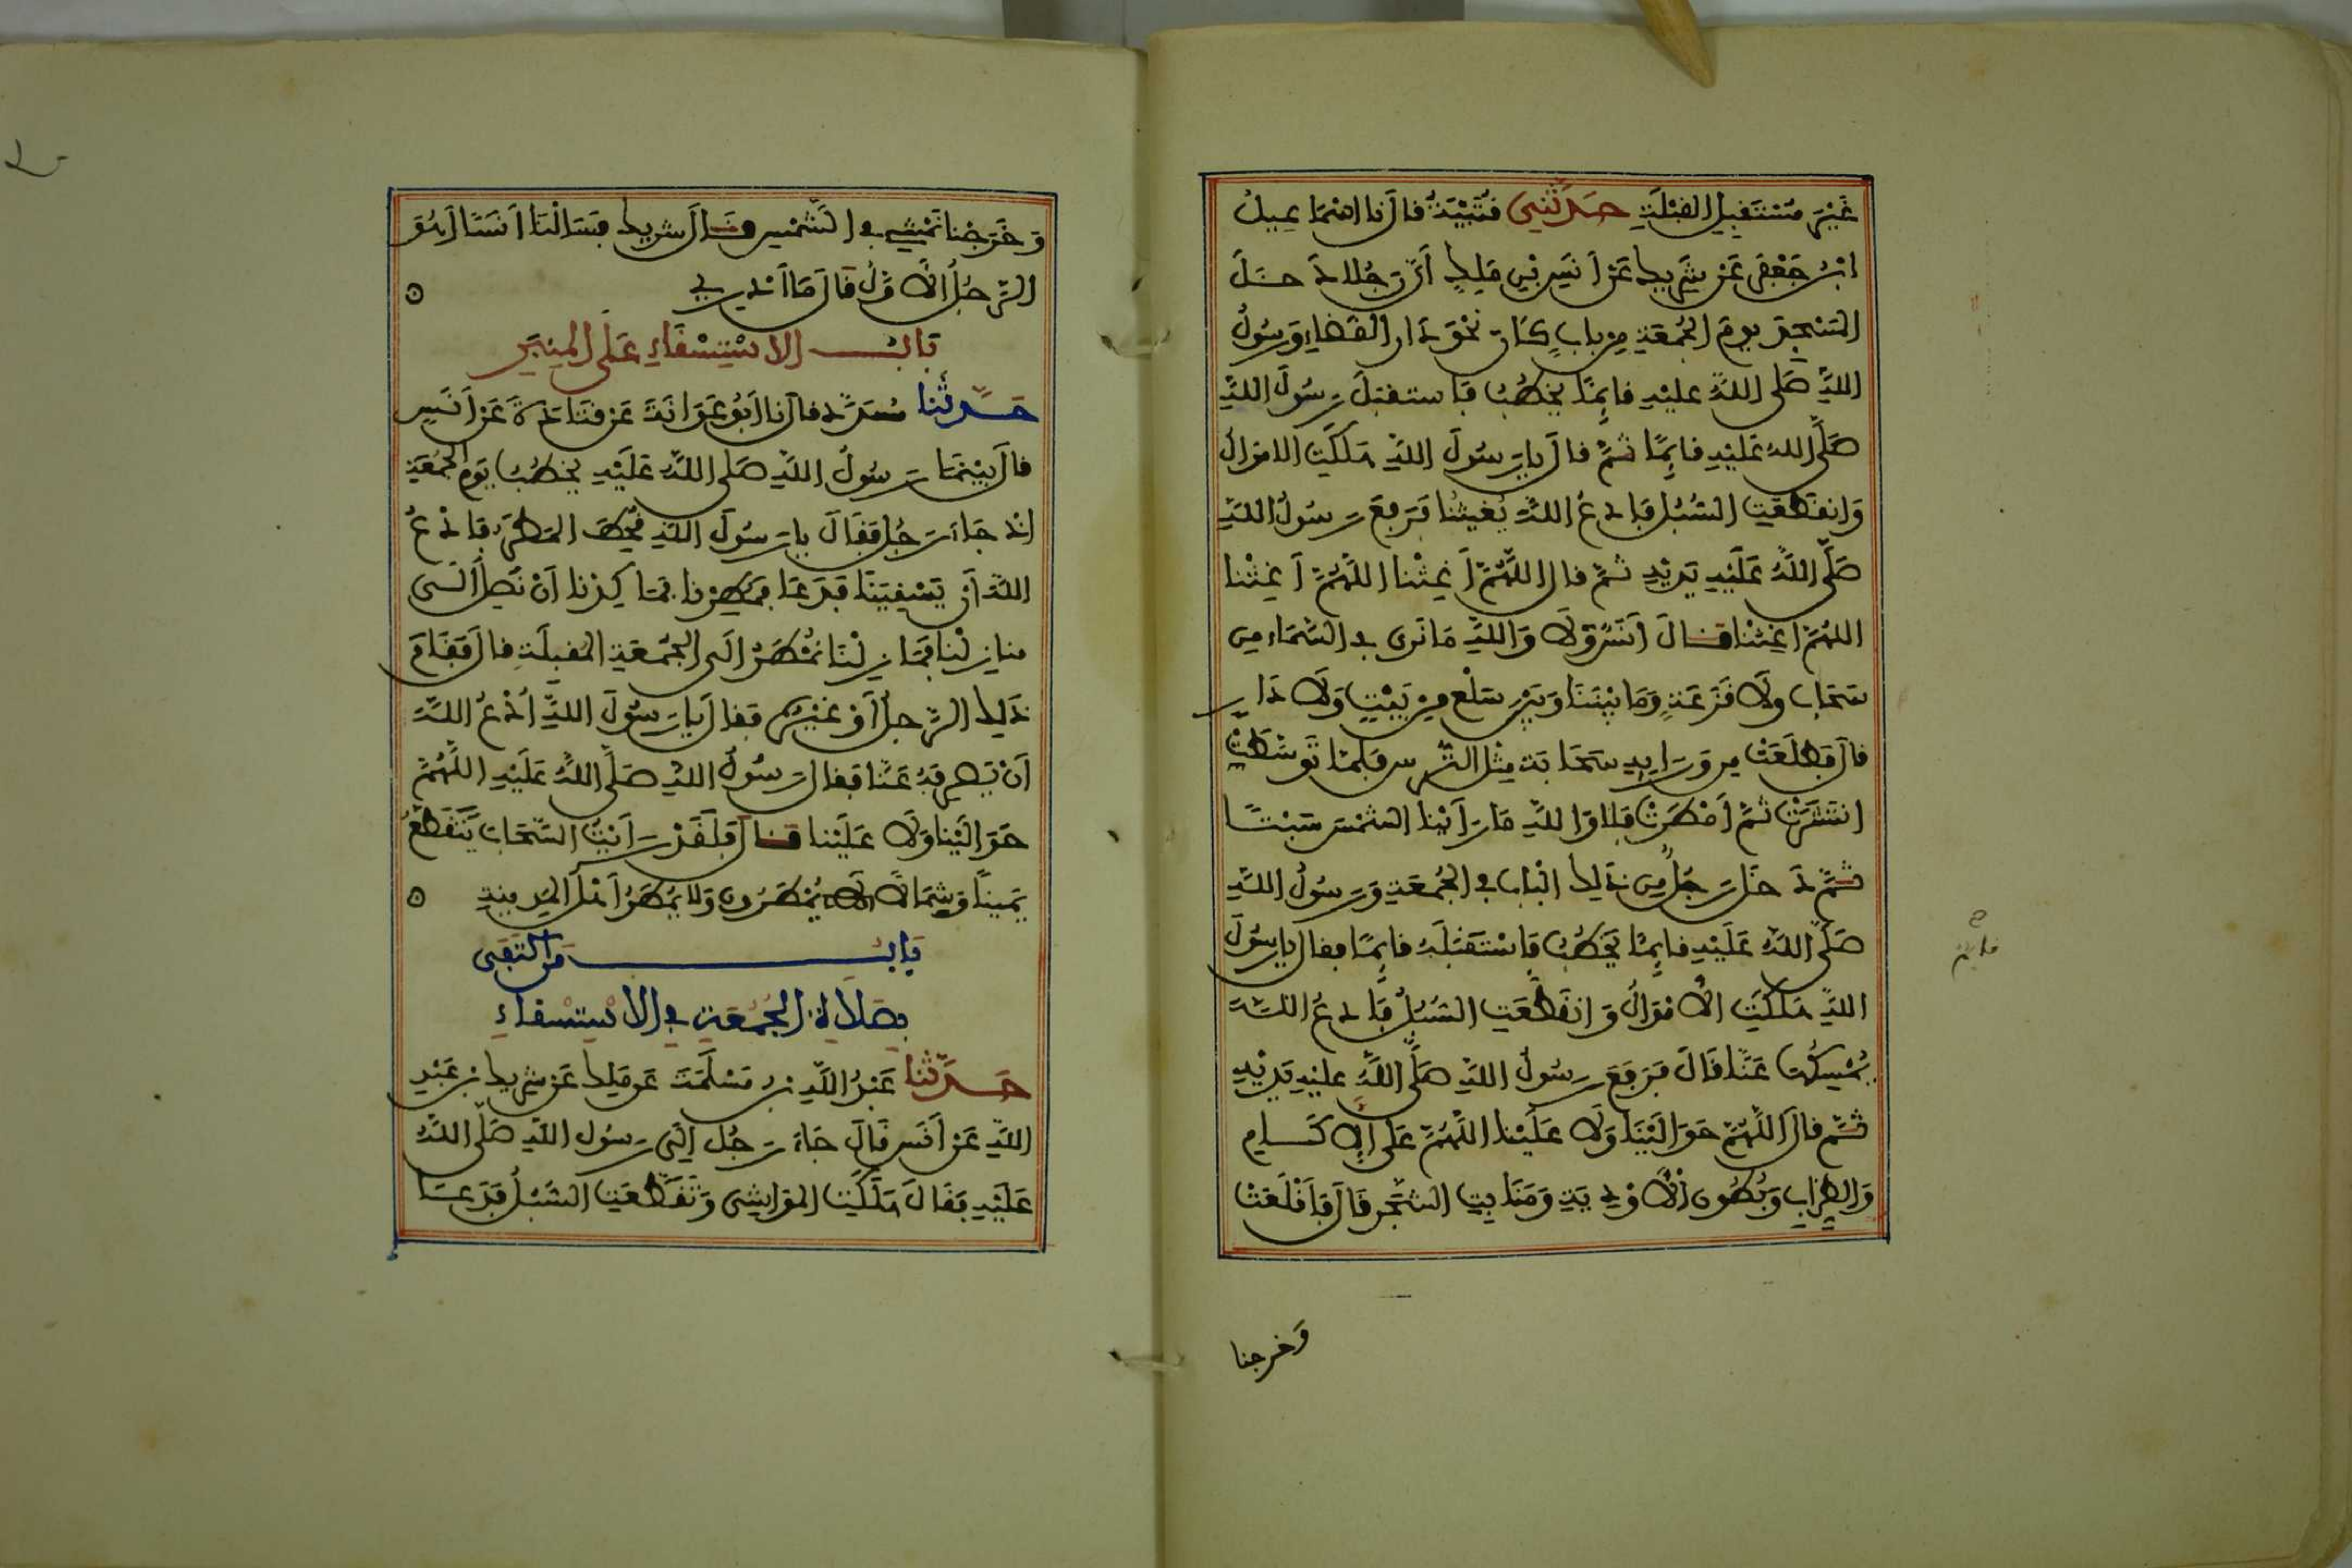 غَيْرَ مُسْتَقْبِلِ القِبْلَةِ حَدَّثَنِي قُتَيْبَةُ قال نا اسْمَاعِيلُ
ابْنُ جَعْفَرٍ عَنْ شَرِيكٍ عَنْ أَنَسِ بْنِ مَلِكٍ أَنَّ رَجُلا دَخَلَ
المَسْجِدَ يومَ الجُمُعَةِ مِن بابٍ كَانَ نَحْوَ دَارِ القَضَاءِ وَرَسُولُ
اللهِ صَلَّى اللهُ عليْهِ قائِمًا يَخْطُبُ فَاستقبلَ رَسُولَ اللهِ
صَلَّى اللهُ عَلَيْهِ قائِمًا ثُمَّ قالَ يا رَسُولَ اللهِ هَلَكَتِ الامْوَالُ
وَانقَطَعَتِ السُّبُل فَادعُ اللهَ يُغِيثُنا فَرَفَعَ رَسُولُ اللهِ
صَلَّى اللهُ عَلَيْهِ يَدَيْهِ ثُمَّ قال اللَّهُمَّ أَغِثْنا اللَّهُمَّ أَغِثْنا
اللهُمَّ اغِثْنا قَالَ أَنَسٌ وَلَا وَاللهِ مَا نَرى في السَّمَاءِ مِن
سَحَابٍ ولَا قَزَعَةٍ وَمَا بَيْنَنَا وَبَيْنَ سَلْعٍ مِنْ بَيْتٍ وَلَا دَارٍ
قالَ فَطَلَعَتْ مِن وَرَايِهِ سَحَابَة مِثْل التُّرس فَلَمَّا تَوَسَّطَتْ
انتَشَرَتْ ثُمَّ أَمْطَرَتْ فَلا وَاللهِ مَا رَأَيْنا الشمْسَ سَبْتًا
ثُمَّ دَخَلَ رَجُلٌ مِن ذَلِكَ البَابِ في الجُمُعَةِ وَرَسُولُ اللهِ
صَلَّى اللهُ عَلَيْهِ قائِمًا يَخْطُبُ فَاسْتَقْبَلَهُ قائِمًا فقال يا رسُولَ
اللهِ هَلَكَتِ الأَمْوَالُ وَانقَطَعَتِ السُّبُلُ فَادعُ اللهَ
يُمْسِكْهَا عَنَّا قَالَ فَرَفَعَ رَسُولُ اللهِ صَلَّى اللهُ عليْهِ يَدَيْهِ
ثُمَّ قالَ اللَّهُمَّ حَوَالَيْنَا وَلَا عَلَيْنا اللَّهُمَّ عَلَى الإكَامِ
وَالظِّرَابِ وَبُطُونِ الأَوْدِيَةِ وَمَنَابِتِ الشَّجَرِ قَالَ فَأَقْلَعَتْ
وَخرجنا
وَخَرَجْنا نَمْشِي في الشَّمْسِ قَالَ شريكٌ فَسَأَلْنَا أَنَسًا أَهُوَ
الرَّجُلُ الأَوَّلُ قَالَ مَا أَدْرِي
بَابُ الاسْتِسْقَاءِ عَلَى المِنْبَرِ
حَدَّثَنا مُسَدَّد قال نا أَبُو عَوَانَةَ عَن قَتَادَةَ عَنْ أَنَسٍ
قالَ بَيْنَمَا رَسُولُ اللهِ صَلى اللهُ عَلَيْهِ يَخْطُبُ يَوم الجُمُعَةِ
اذ جَاءَ رَجُل فَقَالَ يا رَسُولَ اللهِ قُحِطَ المَطَرُ فَادْعُ
اللهَ أن يَسْقِيَنَا فَدَعَا فَمُطِرْنا فَمَا كِدْنا أَنْ نَصِلَ الَى
مَنازِلْنا فَمَا زِلْنَا نُمْطَرُ الَى الجُمُعَةِ المُقبِلَةِ قالَ فَقَامَ
ذَلِكَ الرَّجلُ أَوْ غَيْرُهُ فقالَ يا رَسُولَ اللهِ ادْعُ اللهَ
أَنْ يَصْرِفَهُ عَنَّا فقال رَسُولُ اللهِ صَلَّى اللهُ عَلَيْهِ اللَّهُمَّ
حَوَالَيْنا وَلَا عَلَيْنا قَالَ فَلَقَدْ رَأَيْتُ السَّحَابَ يَتَقَطَّعُ
يَمِينًا وَشِمَالًا يُمْطَرُونَ وَلا يُمْطَرُ أَهْلُ المَدِينَةِ
بَابُ مَن اكْتَفَى
بِصَلَاةِ الجُمُعَةِ في الاسْتِسْقاءِ
حَدَّثَنا عَبْدُ اللهِ بنُ مَسْلَمَةَ عَن مَلِكٍ عَنْ شَرِيكِ بنِ عَبْدِ
اللهِ عَنْ أَنَسٍ قَالَ جَاءَ رَجُل إلَى رَسُولِ اللهِ صَلَّى اللهُ
عَلَيْهِ فَقَالَ هَلَكَتِ المَوَاشِي وَتَقَطَّعَتِ السُّبُلُ فَدَعَا